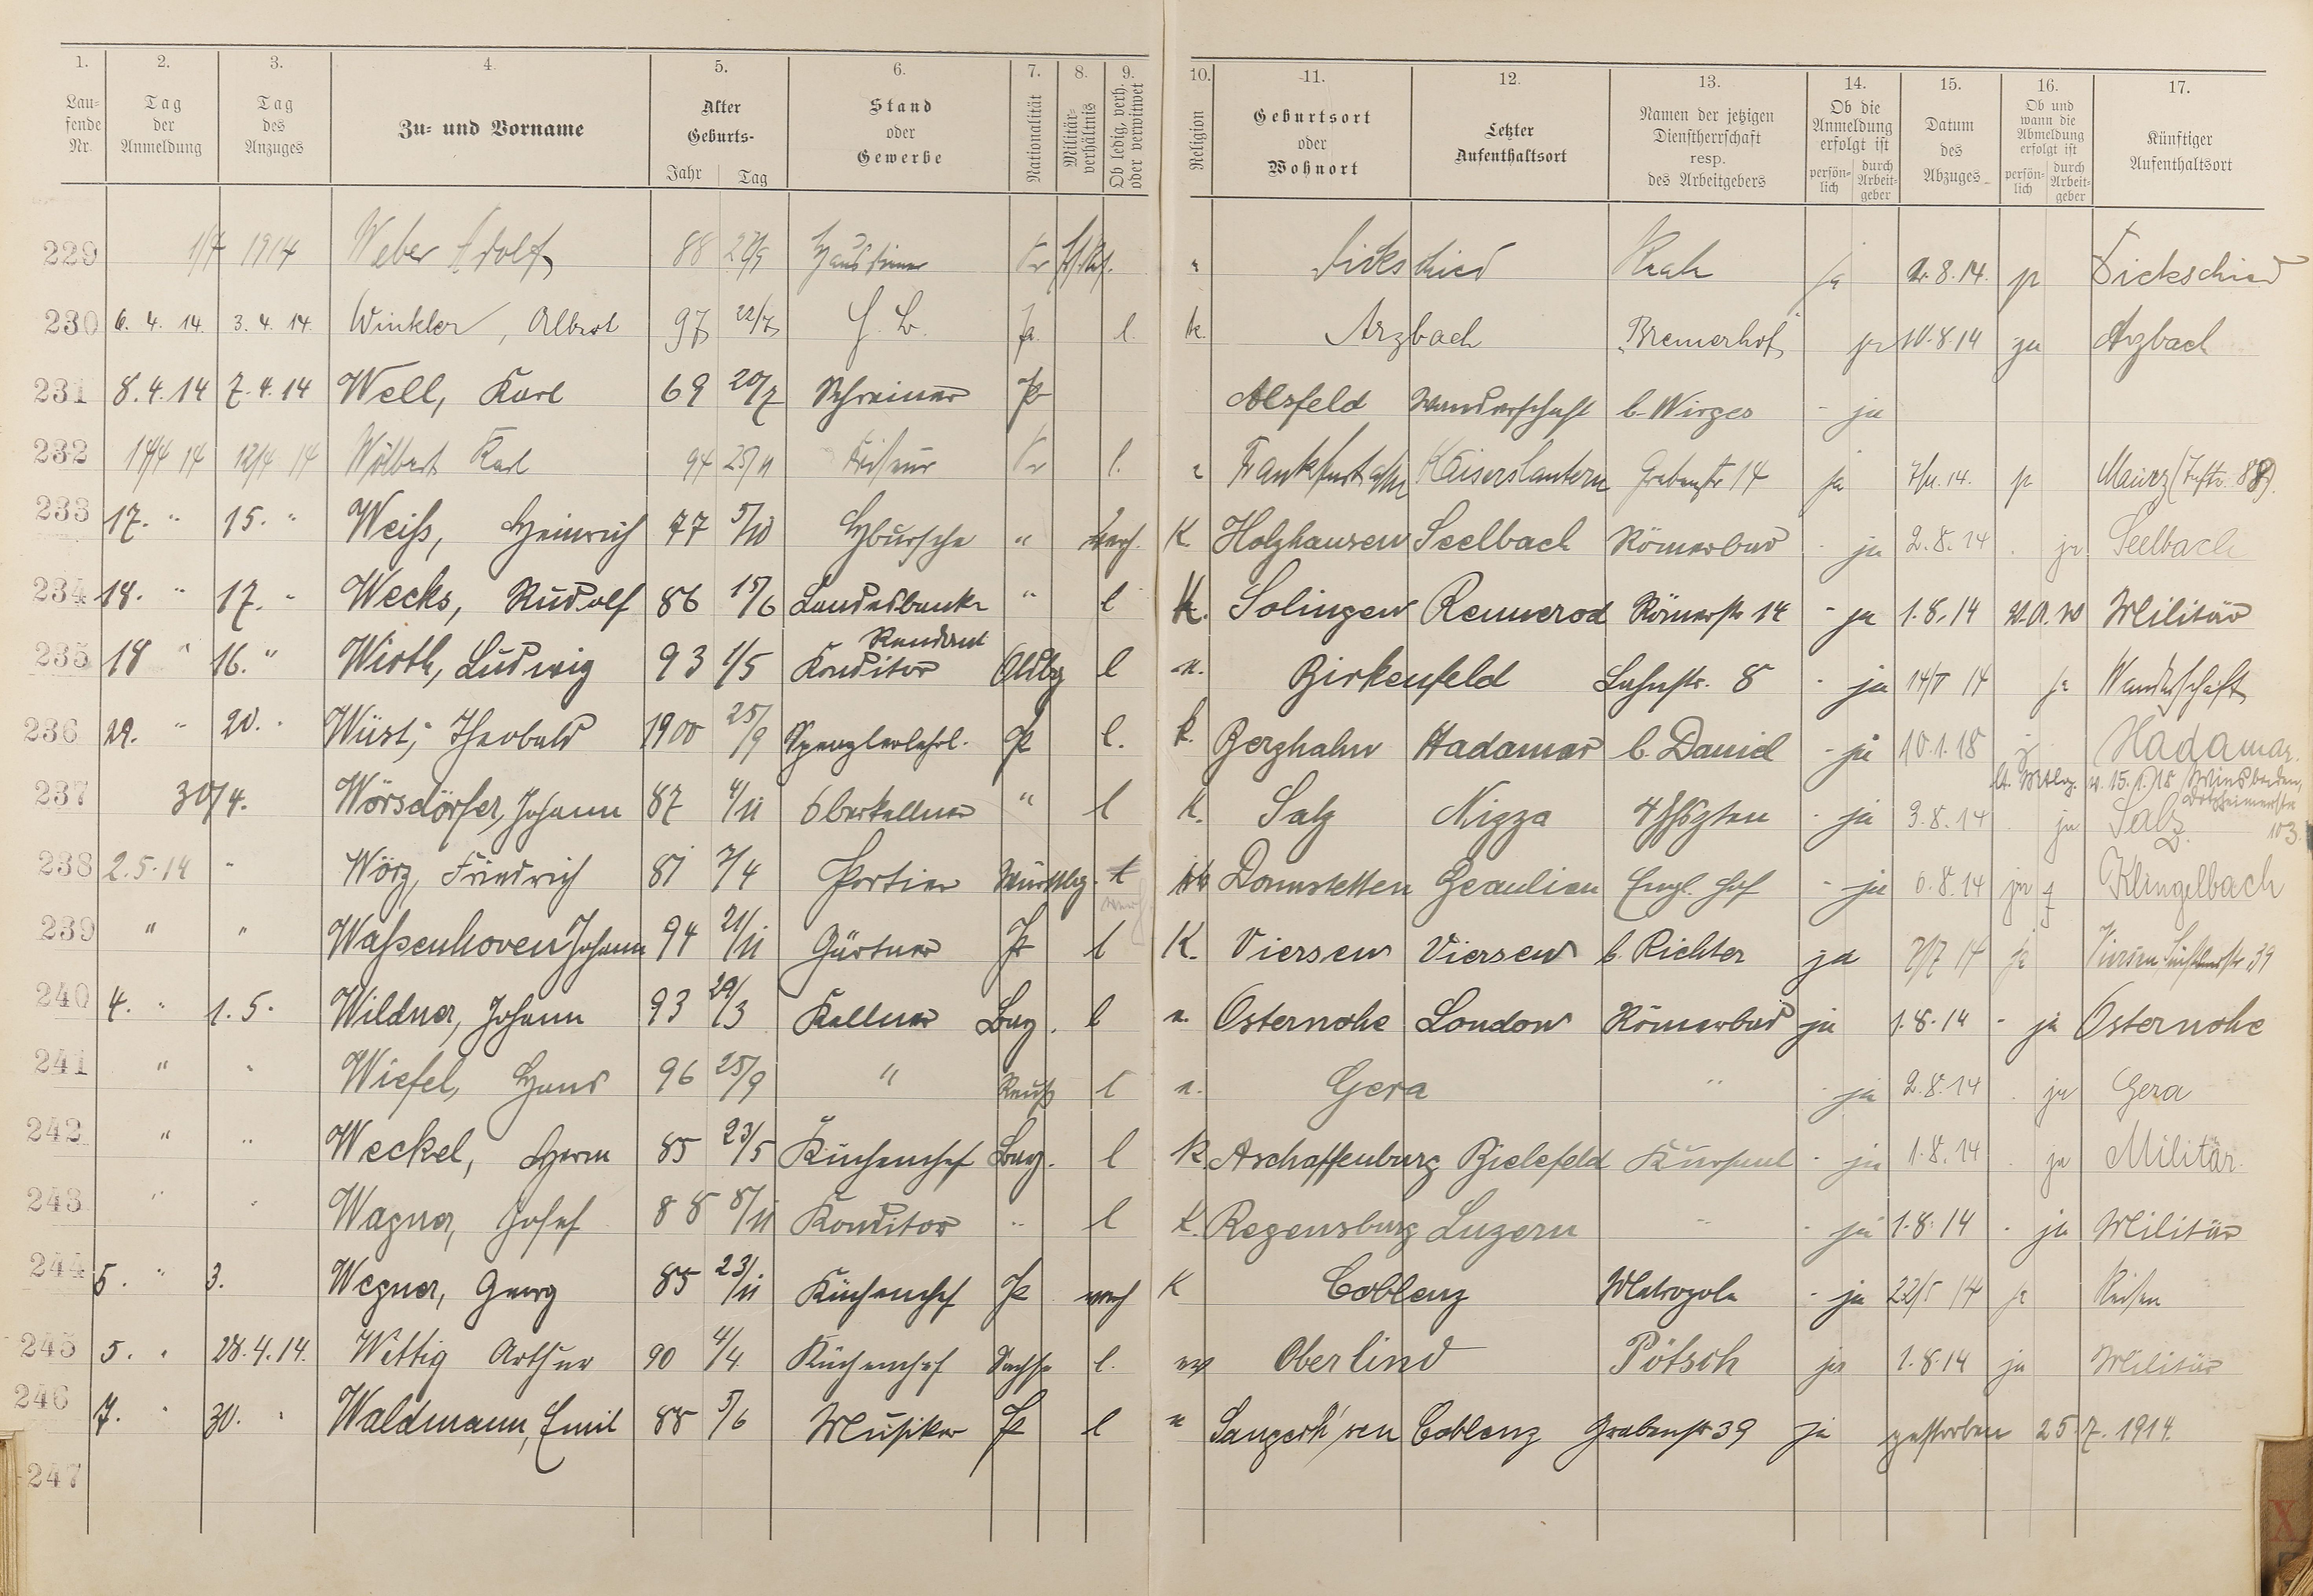 1. 2. 3. 4. 5. 6. 7. 8. 9. 10. 11. 12. 13. 14. 15. 16. 17.
Laufende Nr. Tag der Anmeldung Tag des Anzuges Zu- und Vorname Alter Geburts- Jahr Tag Stand oder Gewerbe Nationalität Militärverhältnis Ob ledig, verh. oder verwitwet Religion Geburtsort oder Wohnort Letzter Aufenthaltsort Namen der jetzigen Dienstherrschaft resp. des Arbeitgebers Ob die Anmeldung erfolgt ist persönlich durch Arbeitgeber Datum des Abzuges Ob und wann die Abmeldung erfolgt ist persönlich durch Arbeitgeber Künftiger Aufenthaltsort
229 1/7 1914 Weber Adolf 88 Hausdiener Dickschied ja 8.14. Dickschied
230 6.4.14. 3.4.14. Winkler, Albert 97 22/7 l. k. Arzbach "Bremerhof" ja 10.8.14 ja Arzbach
231 8.4.14 7.4.14 Well, Karl 69 20/7 Schreiner Pr Alsfeld Wanderschaft b. Wirges - ja
232 14/4 14 12/4 14 Wölbert Karl 94 25/11 Friseur Pr l. Frankfurt a/M Kaiserslautern Grabenstr 14 ja 14. Mainz
233 17. " 15. " Weiß, Heinrich 77 5/10 Hbursche " verh. K. Holzhausen Seelbach Römerbad - ja 2.8.14 . ja Seelbach
234 18. " 17. " Wecks, Rudolf 86 15/6 Landesbank Rendant " l K. Solingen Rennerod Römerstr 14 - ja 1.8.14 Militär
235 18 " 16. " Wirth, Ludwig 93 1/5 Konditor Oldbg l Birkenfeld Lahnstr. 8 - ja 14/5 14 ja Wanderschaft
236 29. " 20. " Wüst, Theobald 1900 25/9 Spenglerlehrl. Pr l. k. Berzhahn Hadamar b. David - ja 10.1.18 Hadamar.
237 30/4. Wörsdörfer, Johann 87 4/11 Oberkellner " l k. Salz Nizza 4 Jhszten - ja 3.8.14 ja Salz 15.1.18 Wiesbaden, Dotzheimerstr 103
238 2.5.14 " Wörz, Friedrich 81 7/4 Portier Württbg. Donnstetten Beaulieu Engl. Hof - ja 6.8.14 ja Klingelbach
239 " " Waßenhoven Johann 94 21/11 Gärtner Pr l K. Viersen Viersen b. Richter ja 7/7 14 ja Viersen 39
240 4. " 1.5. Wildner, Johann 93 29/3 Kellner Bay. l Osternohe London Römerbad ja 1.8.14 - ja Osternohe
241 " " Wiefel, Hans 96 25/9 " Reuß l Gera " - ja 2.8.14 . ja Gera
242 " " Weckel, Herm 85 23/5 Küchenchef Bay. l K Aschaffenburg Bielefeld Kursaal - ja 1.8.14 . ja Militär.
243 " " Wagner, Josef 88 8/11 Konditor " l k. Regensburg Luzern " - ja 1.8.14 - ja Militär
244 5. " 3. Wegner, Georg 85 23/11 Küchenchef Pr verh K Coblenz Metropole - ja 22/5 14 ja Reisen
245 5. " 28.4.14. Wittig Arthur 90 4/4 Küchenchef Sachs l. ev Oberlind Pötsch ja 1.8.14 ja Militär
246 7. " 30. " Waldmann, Emil 88 5/6 Musiker Pr l Sangerh'sen Coblenz Grabenstr 39 ja gestorben 25.7.1914.
247